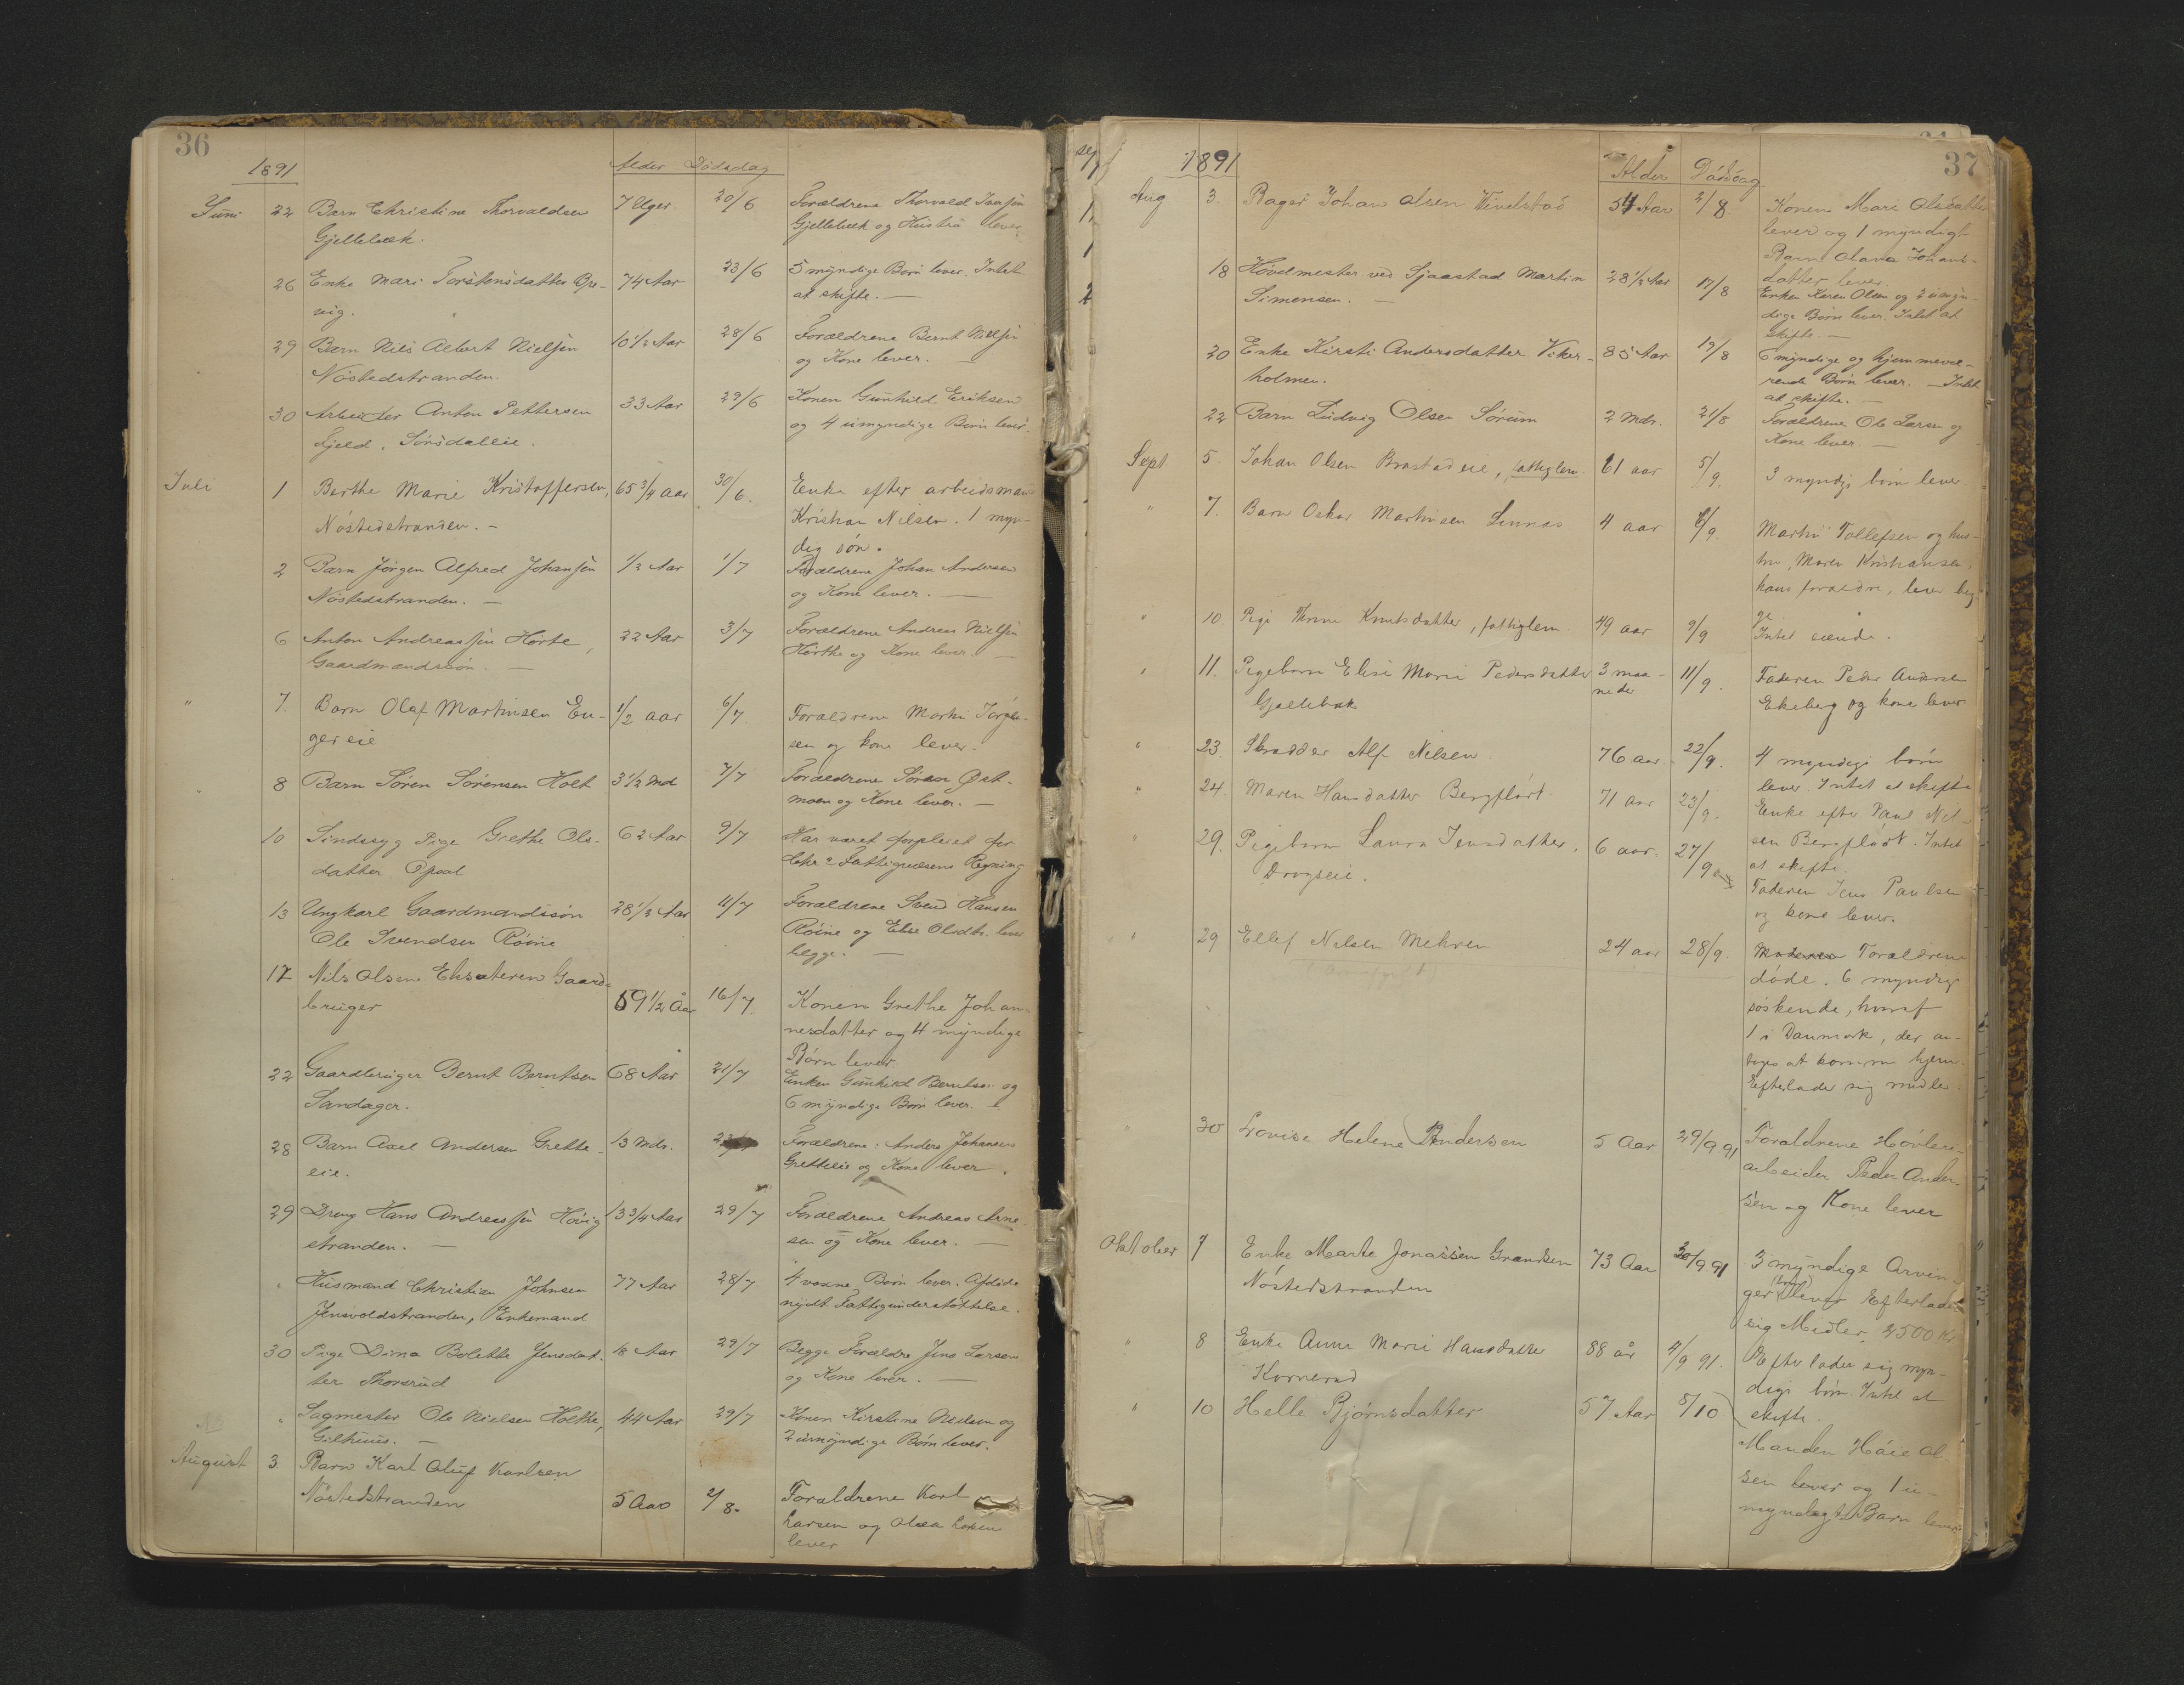 36
1891
Alder Dödsdag
Juni 22 Barn Christine Thorvaldsen 7 Uger 20/6 Forældrene Thorvald
Gjellebæk. Gjellebæk og Hustru lever
26 Enke Mari Torstensdatter 74 Aar 23/6 5 myndige Børn lever. Intet
at skifte. —
29 Barn Nils Albert Nielsen 10 1/2 Aar 28/6 Forældrene Bernt Nielsen
Nöstedstranden. og Kone lever. —
30 Arbeider Anton Pettersen 33 Aar 29/6 Konen Gunhild Eriksen
Fjeld. Sörsdaleie. og 4 umyndige Børn lever.
Juli 1 Berthe Marie Kristoffersen, 65 3/4 aar 30/6. Enke efter arbeidsmand
Nöstedstranden. — Kristian Nilsen. 1 myn-
dig søn.
2 Barn Jörgen Alfred Johansen 1/2 Aar 1/7 Forældrene Johan Andersen
Nöstedstranden. — og Kone lever. —
6 Anton Andreassen Hörte, 22 Aar 3/7 Forældrene Andreas Nielsen
Gaardmandssön. — Hörthe og Kone lever. —
" 7. Barn Olaf Martinsen En- 1/2 aar 6/7. Forældrene Martin Jörgen-
ger eie sen og kone lever.
8 Barn Sören Sörensen Holt 3 1/2 Md 7/7 Forældrene Sören Øst-
moen og Kone lever. —
10 Sindssyg Pige Grethe Ols- 62 Aar 9/7 Har været forpleiet for
datter Opsal Fattigvæsens Regning
13 Ungkarl Gaardmandssön 28 1/2 Aar 11/7 Forældrene Svend Hansen
Ole Svendsen Röine Röine og Else Olsdtr. lever
begge. —
17 Nils Olsen Eksæteren Gaard-
bruger 59 1/2 Aar 16/7. Konen Grethe Johan-
nesdatter og 4 myndige
Börn lever.
22 Gaardbruger Bernt Berntsen 68 Aar 21/7 Enken Gunhild Berntsen og
Sandager. 6 myndige Børn lever. —
28 Barn Axel Andersen Grette- 13 Mdr. Forældrene: Anders Johansen
eie. Gretteeie og Kone lever.
29 Dreng Hans Andreassen Hövig 13 3/4 Aar 29/7 Forældrene Andreas Arne-
stranden. — sen og Kone lever. —
" Husmand Christian Johnsen 77 Aar 28/7 4 voxne Børn lever. Afdöde
Jensvoldstranden, Enkemand nydt Fattigunderstøttelse.
30 Pige Dina Bolette Jensdat- 18 Aar 29/7 Begge Forældre Jens Larsen
ter Thorsrud og Kone lever. —
" Sagmester Ole Nielsen Holthe, 44 Aar 29/7 Konen Kirstine Nielsen og
Gilhuus. — 2 umyndige Børn lever.
August 3 Barn Karl Oluf Karlsen
Nöstedstranden 5 Aar 2/8. Forældrene Karl
Larsen og Olea Larsen
lever
37
1891
Alder Dödsdag
Aug 3. Bager Johan Olsen Vivelstad 54 Aar 2/8 Konen Mari Olsdatter
lever og 1 myndigt
Barn Olava Johans-
datter lever.
18 Hövelmester ved Sjaastad Martin 28 1/2 Aar 17/8 Enken Karen Olsen og 2 umyn-
Simensen. — dige Børn lever. Intet at
skifte. —
20 Enke Kirsti Andersdatter Viker- 85 Aar 19/8 6 myndige og hjemmevæ-
holmen. rende Børn lever. — Intet
at skifte. —
22 Barn Ludvig Olsen Sörum 2 Mdr. 21/8 Forældrene Ole Larsen og
Kone lever. —
Sept. 5. Johan Olsen Brastad eie, fattiglem. 61 aar 5/9. 3 myndige børn lever
" 7. Barn Oskar Martinsen Linnæs 4 aar 6/9. Martin Tollefsen og hus-
tru, Maren Kristiansen,
hans forældre, lever beg-
ge
" 10. Pige Anne Knutsdatter, fattiglem. 49 aar 9/9 Intet eiende.
" 11. Pigebarn Elise Marie Pedersdatter 3 maa- 11/9. Faderen Peder Andersen
Gjellebæk neder Ekeberg og kone lever
" 23. Skrædder Alf Nilsen 76 aar. 22/9. 4 myndige børn
lever. Intet at skifte
" 24. Maren Hansdatter Bergflödt. 71 aar 23/9. Enke efter Paul Nil-
sen Bergflödt. Intet
at skifte.
" 29. Pigebarn Laura Jensdatter, 6 aar. 27/9 Faderen Jens Paulsen
Drogseie. og kone lever.
" 29 Ellef Nilsen Mehren 24 aar 28/9. Forældrene
døde. 6 myndige
søskende, hvoraf
1 i Danmark, der an-
tages at komme hjem.
Efterlader sig midler
" 30 Lovise Helene Andersen 5 Aar 29/9 91 Forældrene Hövleri-
arbeider Peder Ander-
sen og Kone lever
Oktober 7 Enke Marte Jonassen Grandsen 73 Aar 30/9 91 3 myndige Arvin-
Nöstedstranden ger lever Efterlader
sig Midler 2500 Kr
" 8 Enke Anne Marie Hansdatter 88 år 4/9 91. Efterlader sig myn-
Kornerud dige børn. Intet at
skifte.
" 10 Helle Bjørnsdatter 57 Aar 8/10 Manden Håie Ol-
sen lever og 1 u-
myndigt Barn lever